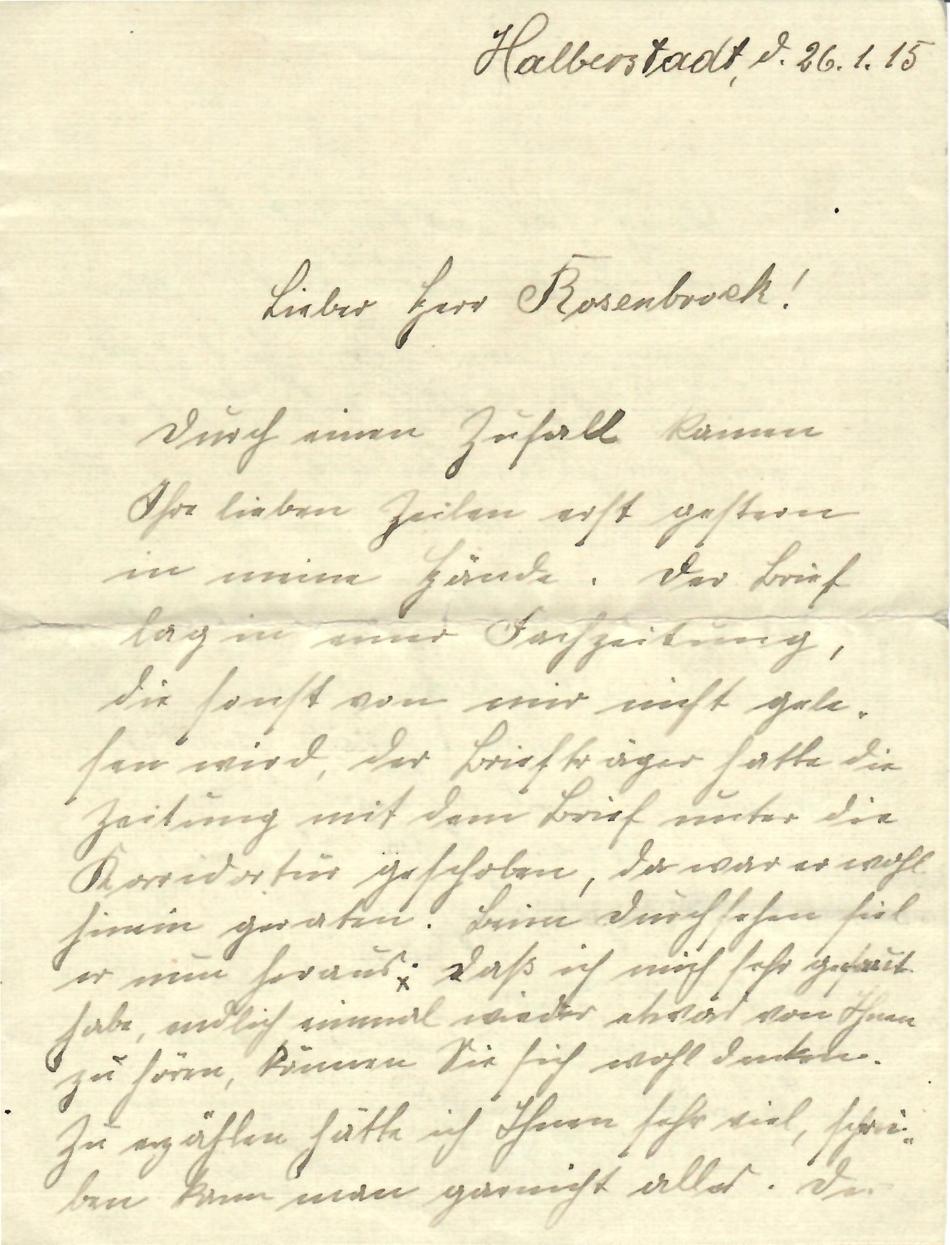 Halberstadt, d. 26.1.15
Lieber Herr Rosenbrock!
Durch einen Zufall kamen
Ihre lieben Zeilen erst gestern
in meine Hände. Der Brief
lag in einer Fachzeitung,
die sonst von mir nicht gele-
sen wird, der Briefträger hatte die
Zeitung mit dem Brief unter die
Korridortür geschoben, da war er wohl
hinein geraten. Beim Durchsehen fiel
er nun heraus. Daß ich mich sehr gefreut
habe, endlich einmal wieder etwas von Ihnen
zu hören, können Sie sich wohl denken.
Zu erzählen hätte ich Ihnen sehr viel, schrei-
ben kann man garnicht alles. Da